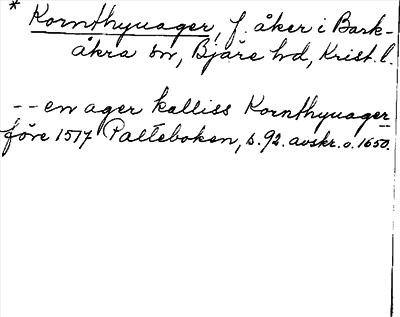 * Kornthyuager, f. åker i Bark-
åkra sn, Bjäre hd, Krist. l.
-- en ager kalliss Kornthyuager
före 1517 Palteboken, s. 92. avskr. o. 1650.